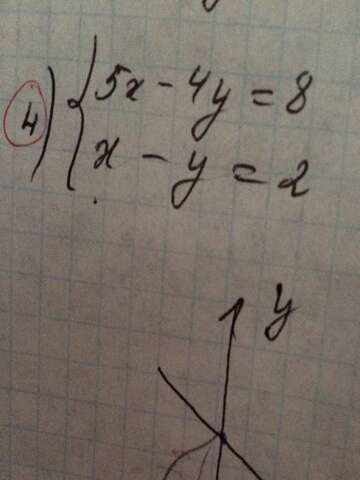 4) { 5x - 4y = 8
x - y = 2
y